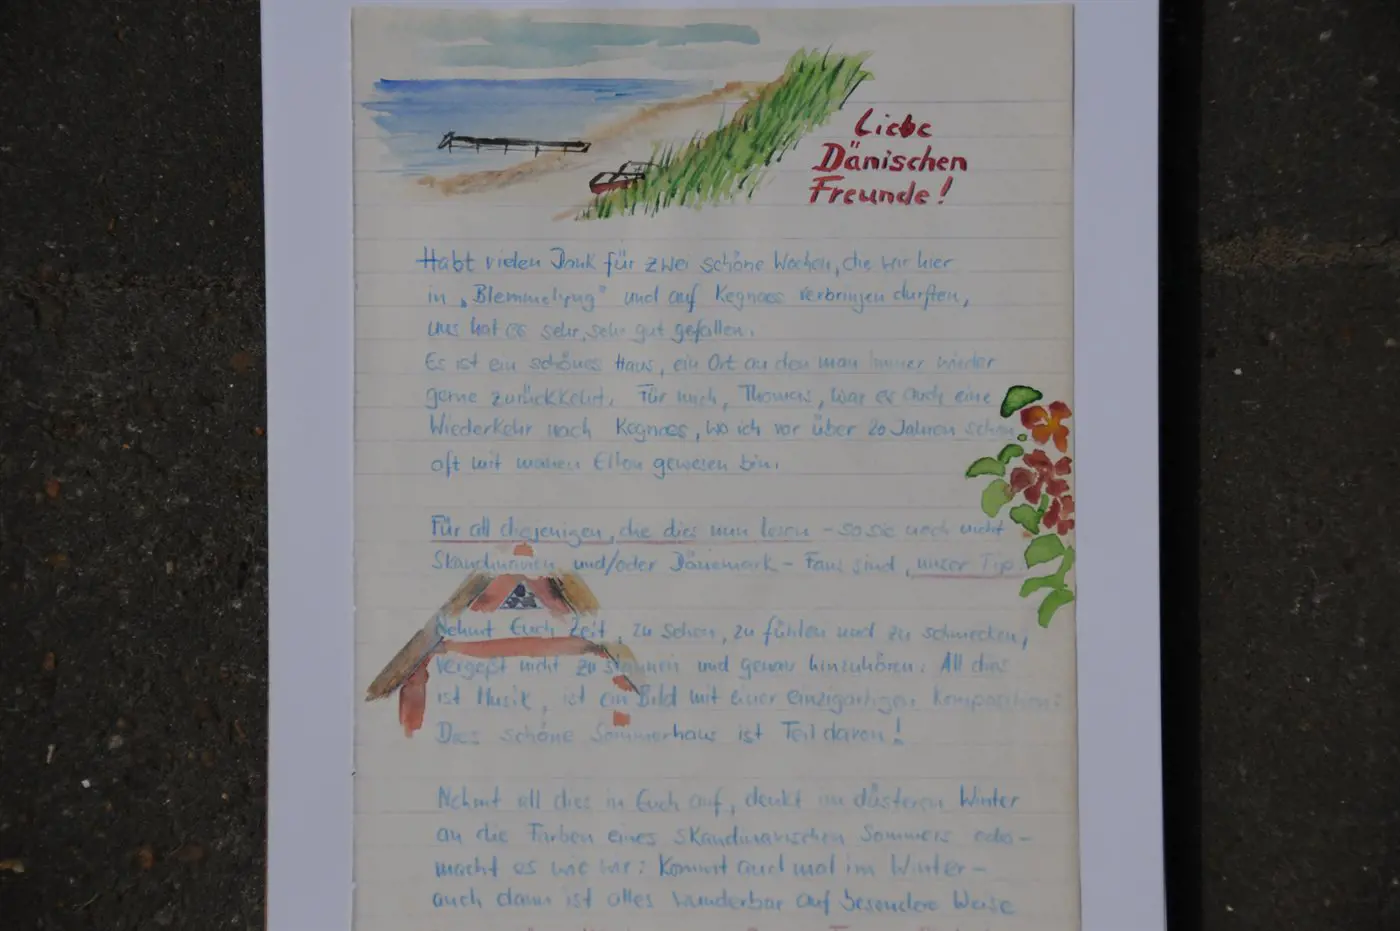 Liebe
Dänischen
Freunde!
Habt vielen Dank für zwei schöne Wochen, die wir hier
in „Blemmelyng“ und auf Kegnaes verbringen durften,
uns hat es sehr, sehr gut gefallen.
Es ist ein schönes Haus, ein Ort an den man immer wieder
gerne zurückkehrt. Für mich, Thomas, war es auch eine
Wiederkehr nach Kegnaes, wo ich vor über 20 Jahren schon
oft mit meinen Eltern gewesen bin.
Für all diejenigen, die dies nun lesen - so sie noch nicht
Skandinavien und/oder Dänemark - Fans sind, unser Tip:
Nehmt Euch Zeit, zu sehen, zu fühlen und zu schmecken,
vergeßt nicht zu staunen und genau hinzuhören: All dies
ist Musik, ist ein Bild mit einer einzigartigen Komposition:
Dies schöne Sommerhaus ist Teil davon!
Nehmt all dies in Euch auf, denkt im düsteren Winter
an die Farben eines skandinavischen Sommers oder -
macht es wie wir: Kommt auch mal im Winter -
auch dann ist alles wunderbar auf besondere Weise